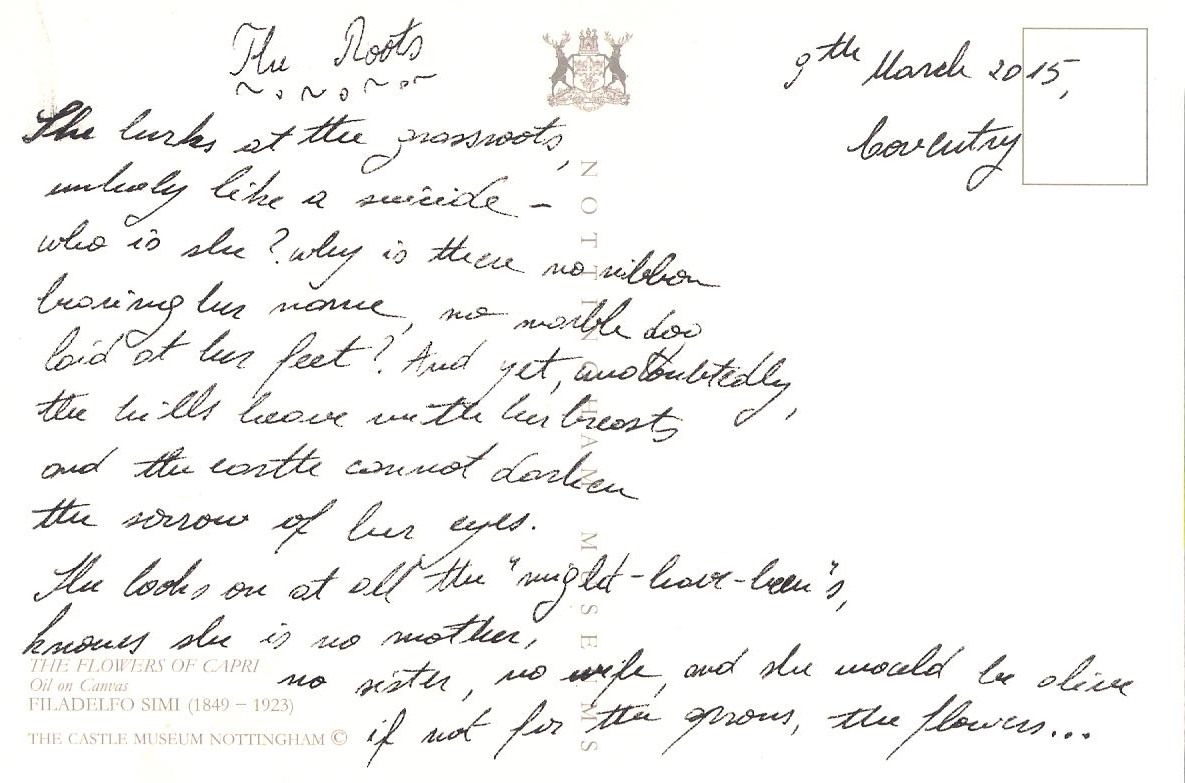 The Roots
9th March 2015,
Coventry
She lurks at the grassroots,
unholy like a suicide –
who is she? why is there no ribbon
bearing her name, no marble
laid at her feet? And yet, undoubtedly,
the hills heave with her breasts
and the castle cannot darken
the sorrow of her eyes.
She looks on at all the "might-have-been"s,
knows she is no mother,
no sister, no wife, and she would be alive
if not for the aprons, the flowers...
THE FLOWERS OF CAPRI
Oil on Canvas
FILADELFO SIMI (1849 – 1923)
THE CASTLE MUSEUM NOTTINGHAM ©
NOTTINGHAM MUSEUMS